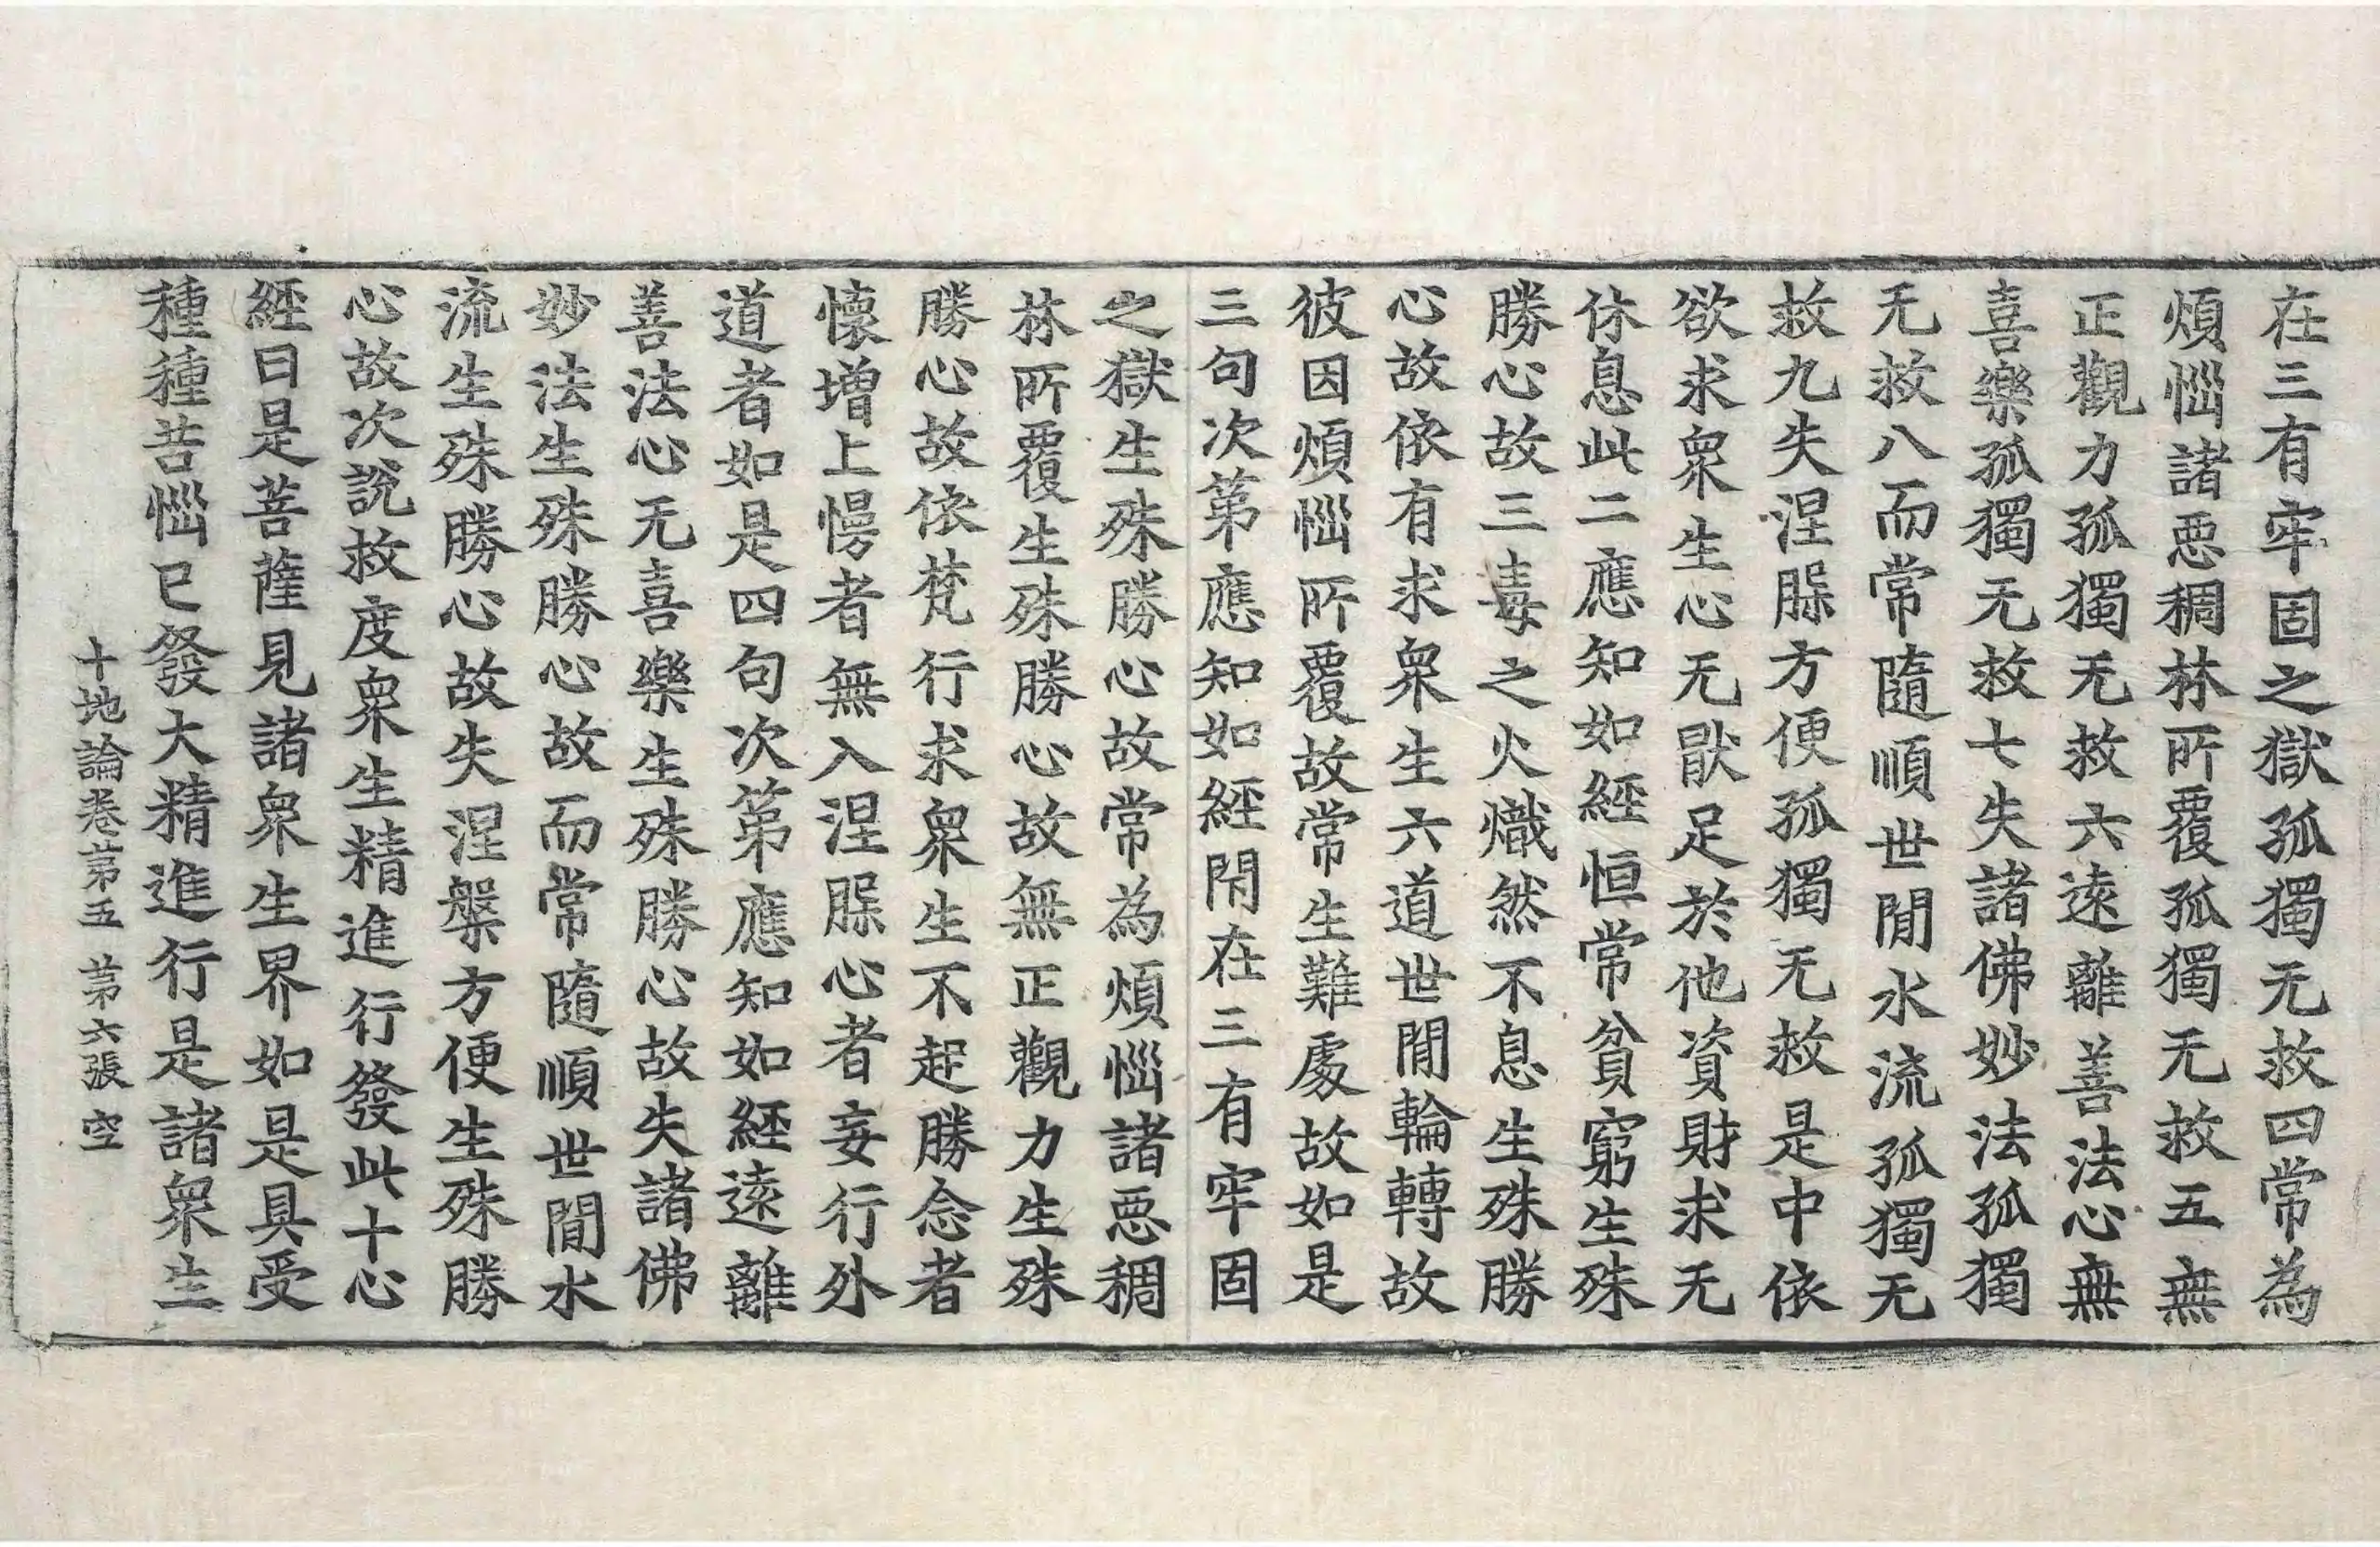 在三有牢固之獄孤獨无救四常為
煩惱諸惡稠林所覆孤獨无救五無
正觀力孤獨无救六遠離善法心無
喜樂孤獨无救七失諸佛妙法孤獨
无救八而常隨順世間水流孤獨无
救九失涅槃方便孤獨无救是中依
欲求衆生心无猒足於他資財求无
休息此二應知如經恒常貧窮生殊
勝心故三毒之火熾然不息生殊勝
心故依有求衆生六道世間輪轉故
彼因煩惱所覆故常生難處故如是
三句次第應知如經閇在三有牢固
之獄生殊勝心故常為煩惱諸惡稠
林所覆生殊勝心故無正觀力生殊
勝心故依梵行求衆生不起勝念者
懷增上慢者無入涅槃心者妄行外
道者如是四句次第應知如經遠離
善法心无喜樂生殊勝心故失諸佛
妙法生殊勝心故而常隨順世間水
流生殊勝心故失涅槃方便生殊勝
心故次說救度衆生精進行發此十心
經曰是菩薩見諸衆生界如是具受
種種苦惱已發大精進行是諸衆生
十地論卷第五 第六張 空